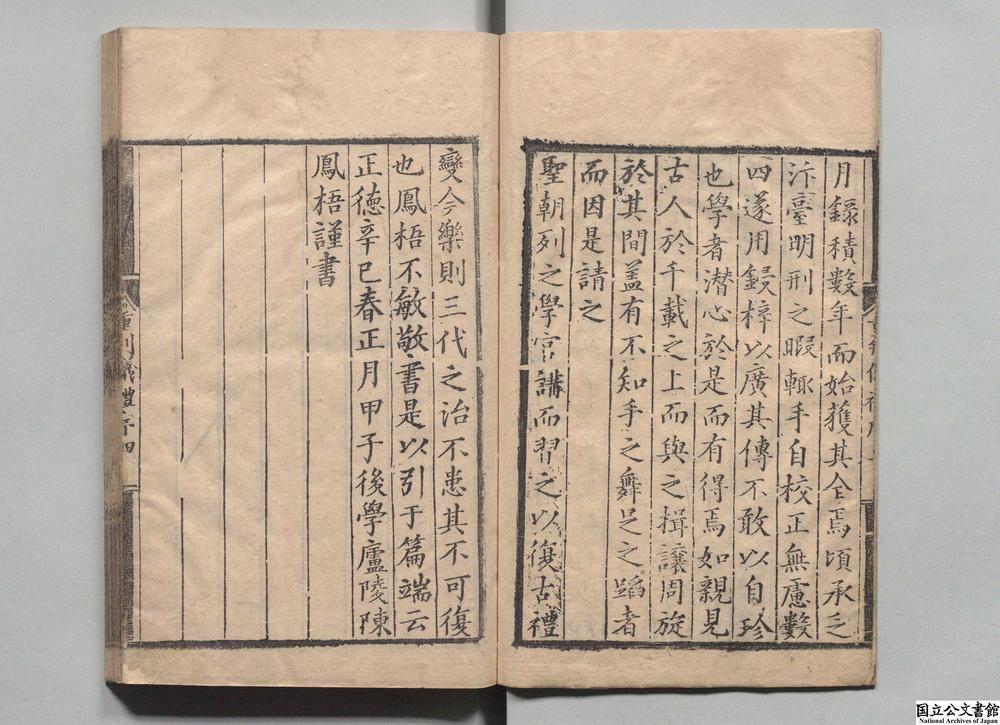 月錄積數年而始獲其全焉頃承乏
汴臺明刑之暇輒手自校正無慮數
四遂用鋟梓以廣其傳不敢以自珍
也學者潜心於是而有得焉如親見
古人於千載之上而與之揖讓周旋
於其間盖有不知手之舞足之蹈者
而因是請之
聖朝列之學官講而習之以復古禮
變今樂則三代之治不患其不可復
也鳳梧不敏敬書是以引于篇端云
正德辛巳春正月甲子後學廬陵陳
鳳梧謹書
重刊儀禮序四
国立公文書館
National Archives of Japan